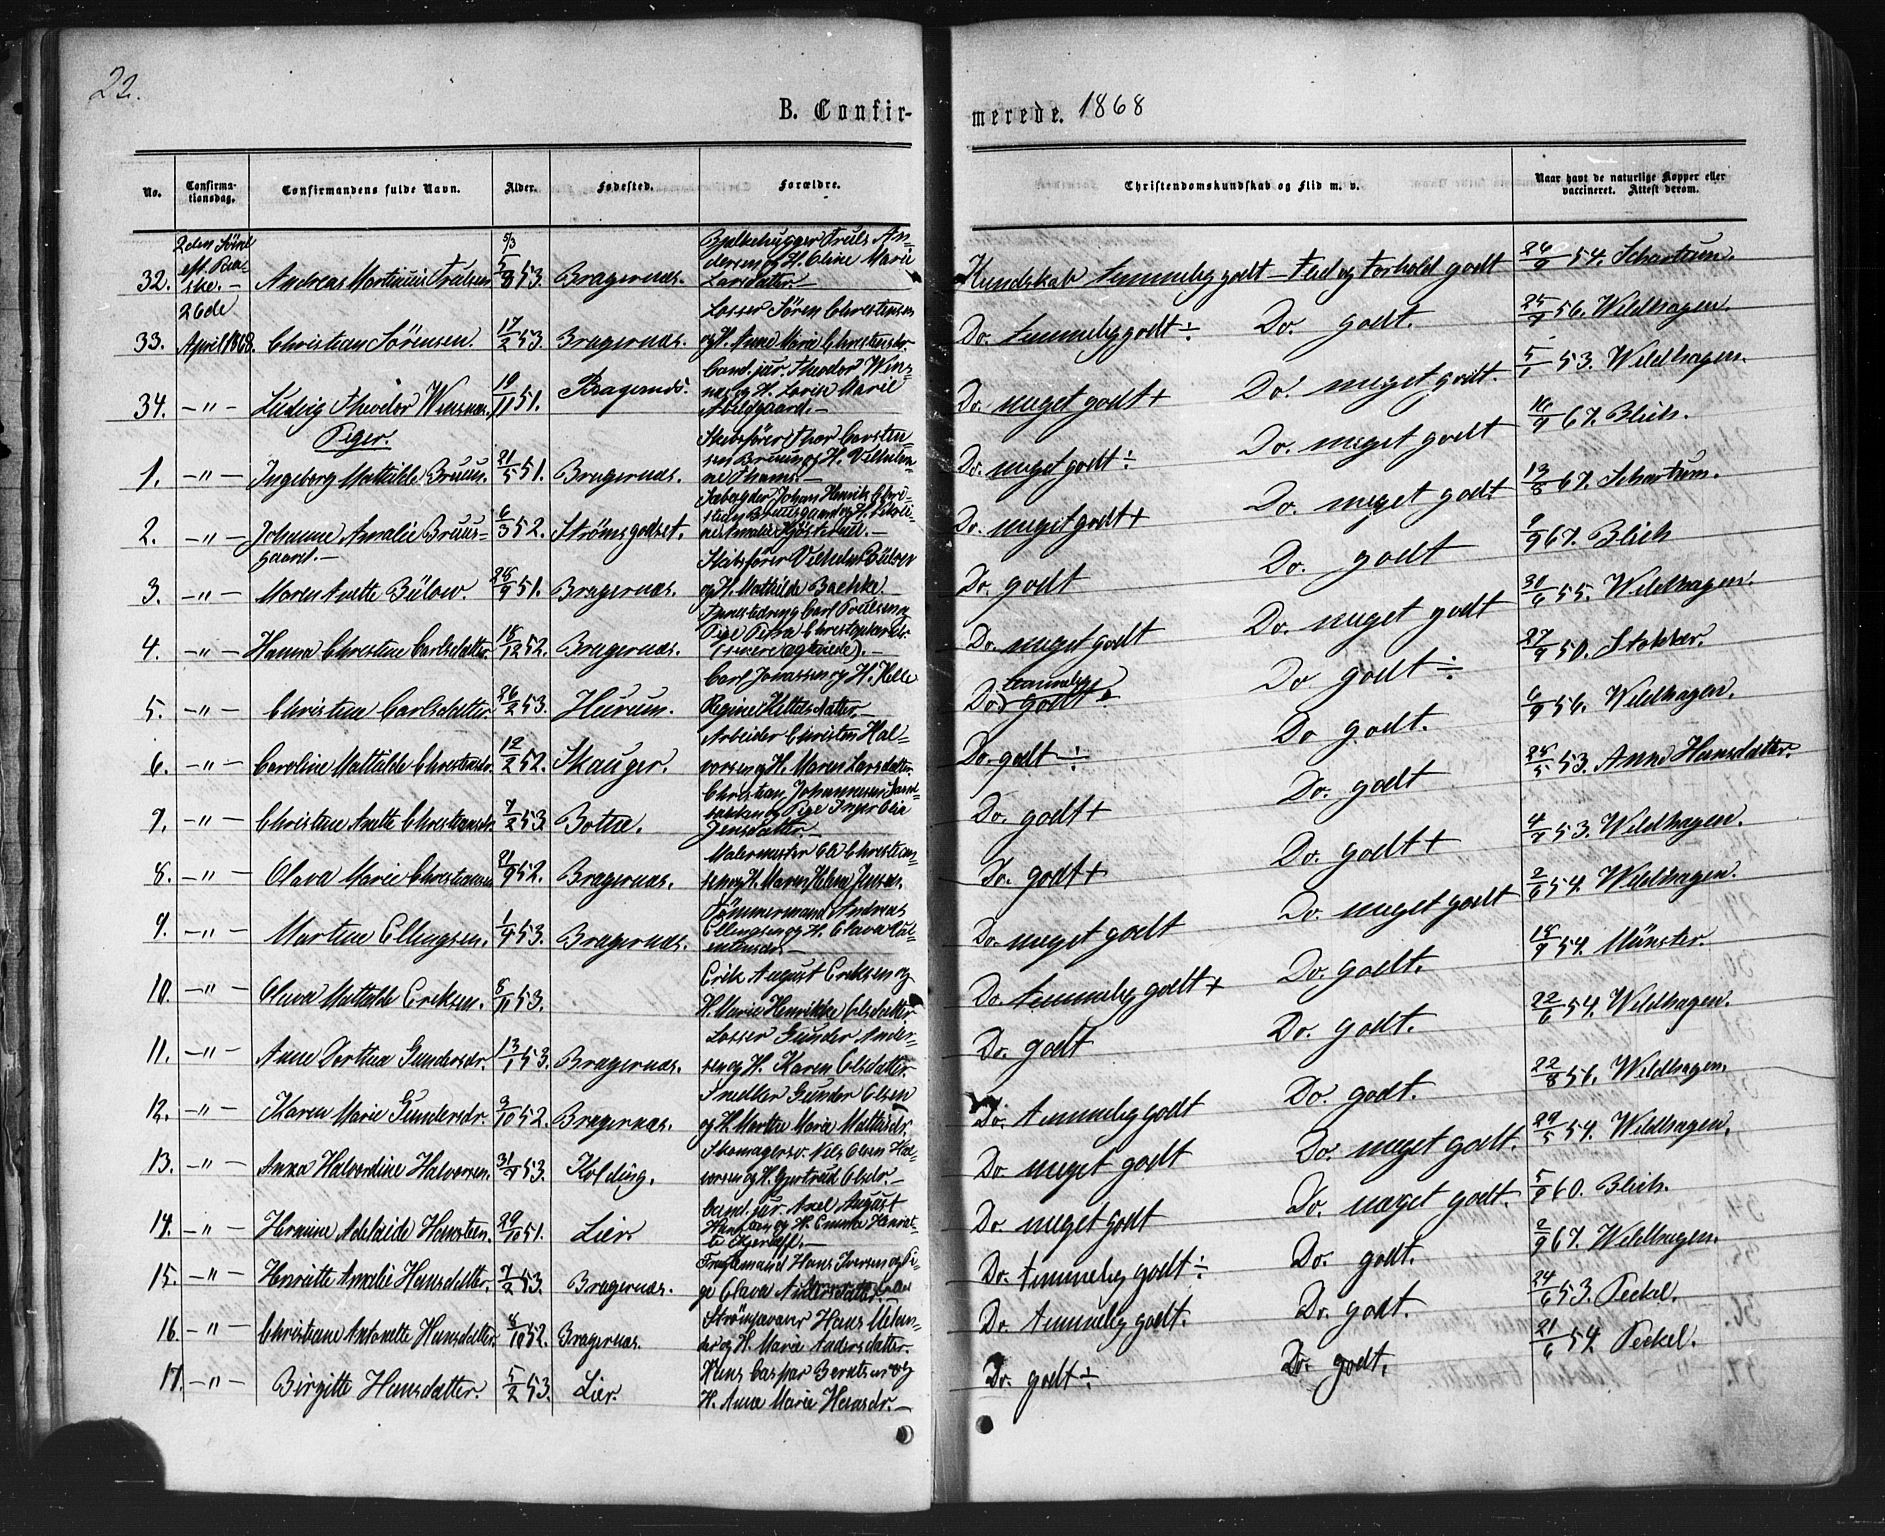 22.
B. Confir-
merede. 1868
No. Confirma-tionsdag. Confirmandens fulde Navn. Alder. Fødested. Forældre. Christendomskundskab og Flid m. v. Naar havt de naturlige Kopper eller vaccineret. Attest derom.
32. 2den Sønd. eft. Paa-ske. — Andreas Martinius Trulsen 5/8 53. Bragernæs. Bjelkehugger Truls An-dersen og H. Oline Marie Larsdatter. — Kundskab temmelig godt — Flid og Forhold godt 26/9 54. Schartum.
33. 26de April 1868. Christian Sørensen. 17/2 53. Bragernæs. Losser Søren Christensen og H. Anne Marie Christensdr. Do. temmelig godt ÷ Do. godt. 25/9 56. Wildhagen.
34. —"— Ludvig Theodor Winsnæs. 19/11 51. Bragernæs. Cand. jur. Theodor Wins-næs og H. Lovise Marie Abildgaard. — Do. meget godt + Do. meget godt. 5/1 53. Wildhagen.
Piger.
1. —"— Ingeborg Mathilde Bruun. 21/5 51. Bragernæs. Skibsfører Thor Carsten-sen Bruun og H. Vilhelmi-ne Thams. — Do. meget godt ÷ Do. meget godt 16/9 67. Blich.
2. —"— Johanne Amalie Bruus-gaard. — 6/3 52. Strømsgodset. Johan Henrik Chri-stian Bruusgaard og H. Amalie — Do. meget godt + Do. meget godt 13/8 67. Schartum.
3. —"— Maren Anette Bülow. 28/9 51. Bragernæs. Skibsfører Vilhelm Bülow og H. Mathilde Bachke. Do. godt Do. godt 9/9 67. Blich
4. —"— Hanna Christine Carlsdatter. 18/12 52. Bragernæs. Carl Poulsen og Pige Petra Christophersdr. (senere ægteviede). — Do. meget godt Do. meget godt 30/6 55. Wildhagen.
5. —"— Christine Carlsdatter. 26/2 53. Hurum. Carl Jonassen og H. Helle Regine Kittelsdatter. — Do. temmelig godt. Do. godt ÷ 27/9 50. Stokker.
6. —"— Caroline Mathilde Christensdr. 12/2 52. Skauger. Arbeider Christen Hal-vorsen og H. Maren Larsdatter. Do. godt ÷ Do. godt. 6/9 56. Wildhagen.
7. —"— Christine Anette Christiansdr. 7/2 53. Botne. Christian Johannessen og Pige Inger Olia Jensdatter. — Do. godt + Do. godt 25/5 53. Anne Hansdatter.
8. —"— Olava Marie Christiansen 21/9 52. Bragernæs. Malermester Ole Christian-sen og H. Maren Helene Jensen. Do. godt + Do. godt + 4/7 53. Wildhagen.
9. —"— Martine Ellingsen. 1/4 53. Bragernæs. Tømmermand Andreas Ellingsen og H. Olava — Do. meget godt Do. meget godt 2/6 54. Wildhagen.
10. —"— Olava Mathilde Eriksen. 8/11 53. Erik August Eriksen og H. Marie Henrikke Olsdatter Do. temmelig godt + Do. godt. 18/9 54. Münster.
11. —"— Anne Dorthea Gundersdr. 13/1 53. Bragernæs. Losser Gunder Ander-sen og H. Karen Olsdatter. Do. godt Do. godt. 22/6 54. Wildhagen.
12. —"— Karen Marie Gundersdr. 9/10 52. Bragernæs. Snedker Gunder Olsen og H. Marthe Marie Mathisdr. Do. temmelig godt Do. godt. 22/8 56. Wildhagen.
13. —"— Anna Halvordine Halvorsen. 31/7 53. Kolding. Skomagersv. Nils Olsen Hal-vorsen og H. Gjertrud Olsdr. — Do. meget godt Do. meget godt. 29/5 54. Wildhagen.
14. —"— Hermine Adelaide Hansteen. 29/10 51. Lier Cand. jur. Axel August Hansteen og H. Emma Henriet-te Kjerulf. — Do. meget godt Do. meget godt. 5/9 60. Blich.
15. —"— Henriette Amalie Hansdatter. 7/2 53. Bragernæs. Hans Iversen og Pi-ge Olava Andersdatter. — Do. temmelig godt ÷ Do. godt. 2/9 67. Wildhagen.
16. —"— Christiane Antonette Hansdatter. 8/10 52. Bragernæs. Hans og H. Marie Andersdatter. Do. temmelig godt. Do. godt. 24/6 53. Peckel.
17. —"— Birgitte Hansdatter. 5/2 53. Lier. Hans Caspar Berntsen og H. Anne Marie Hansdr. — Do. godt ÷ Do. godt. 21/6 54. Peckel.